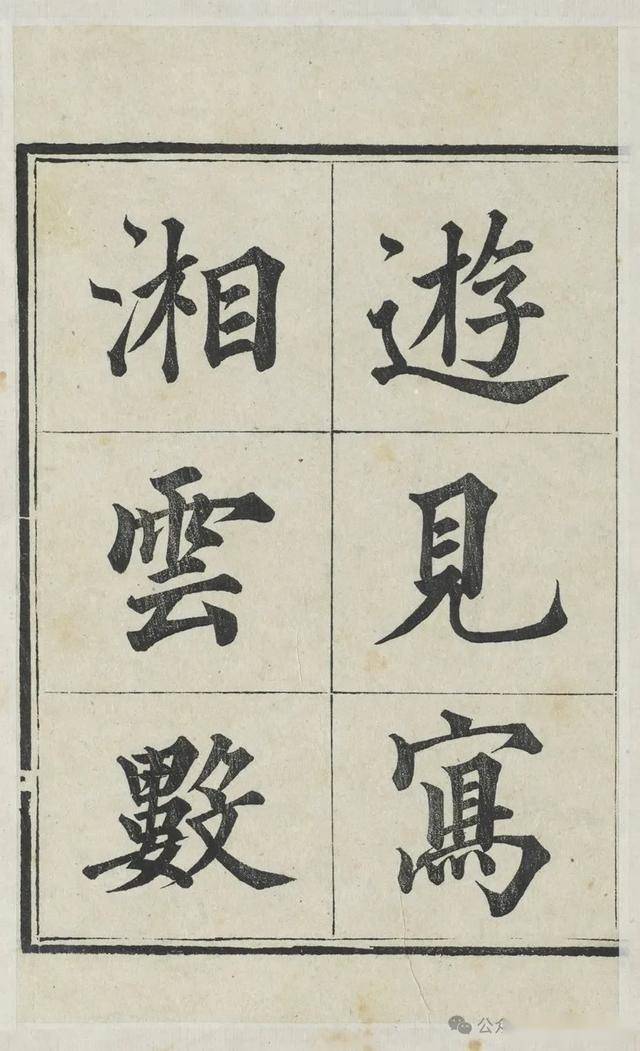 遊見寫
湘雲數
公众